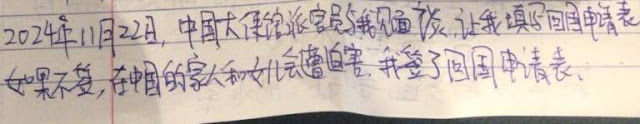 2024年11月22日，中国大使馆派官员与我见面谈，让我填写回国申请表
如果不签，在中国的家人和女儿会遭迫害，我签了回国申请表、